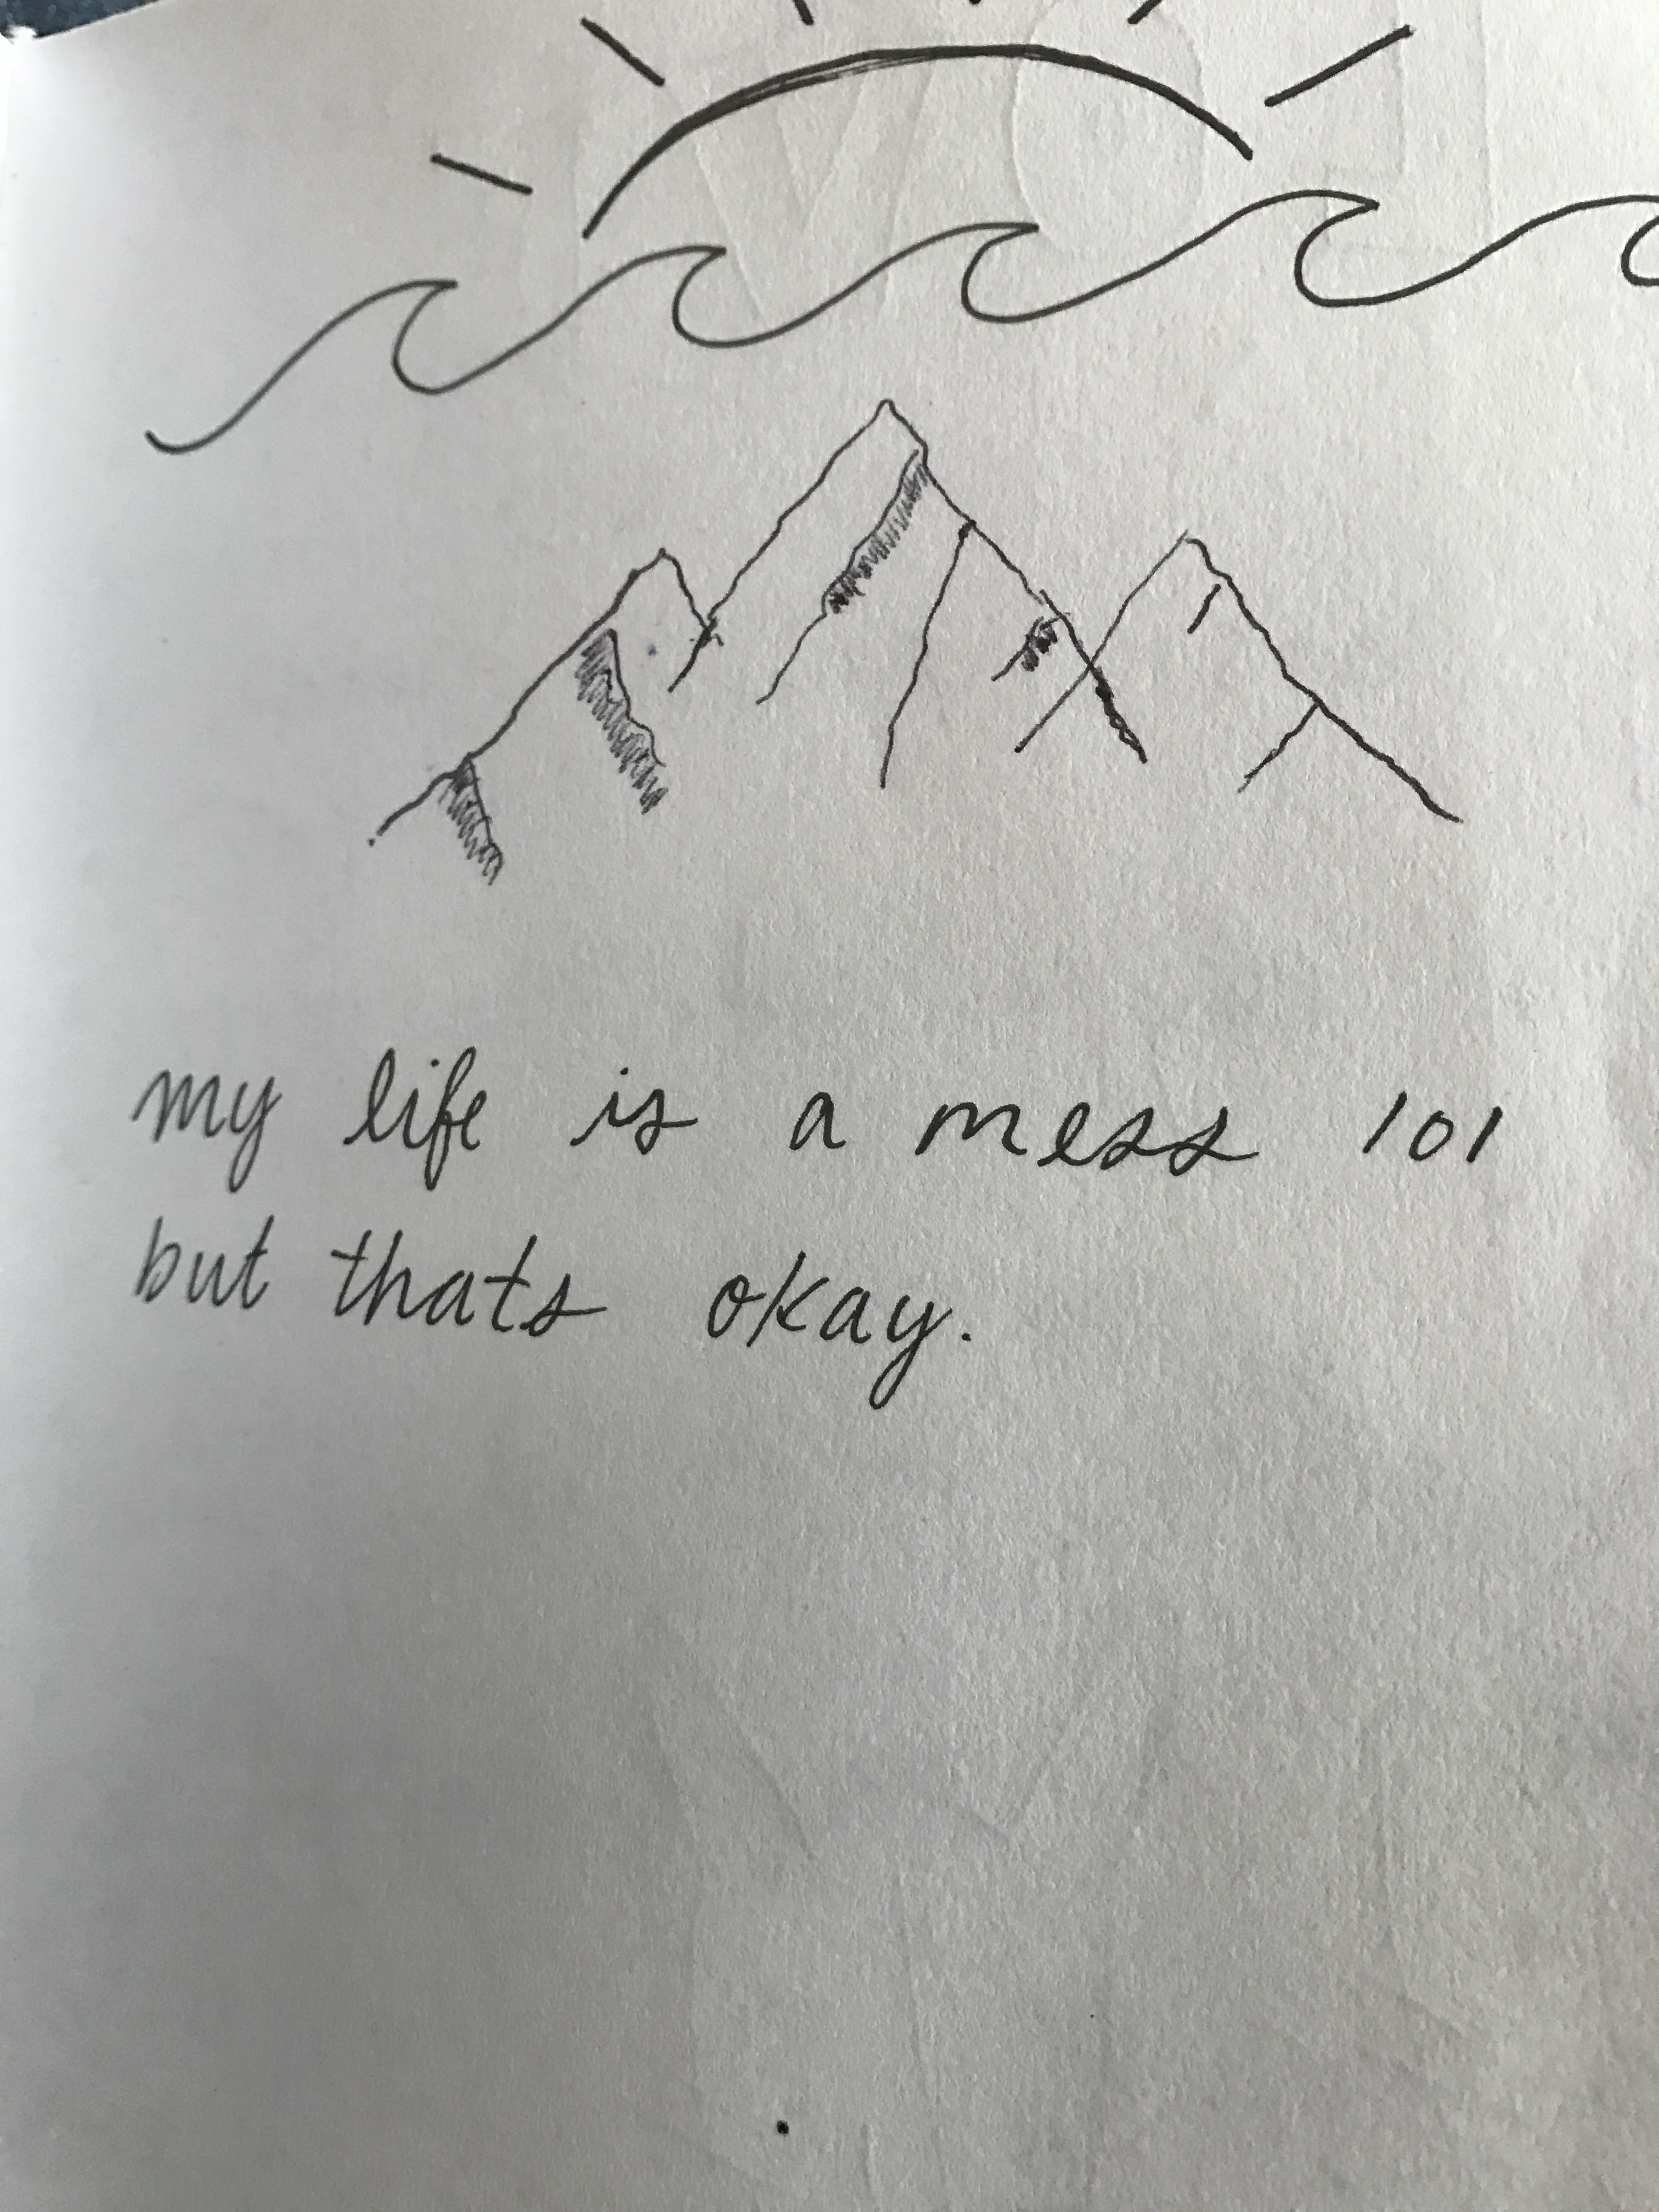 my life is a mess 101
but thats okay.